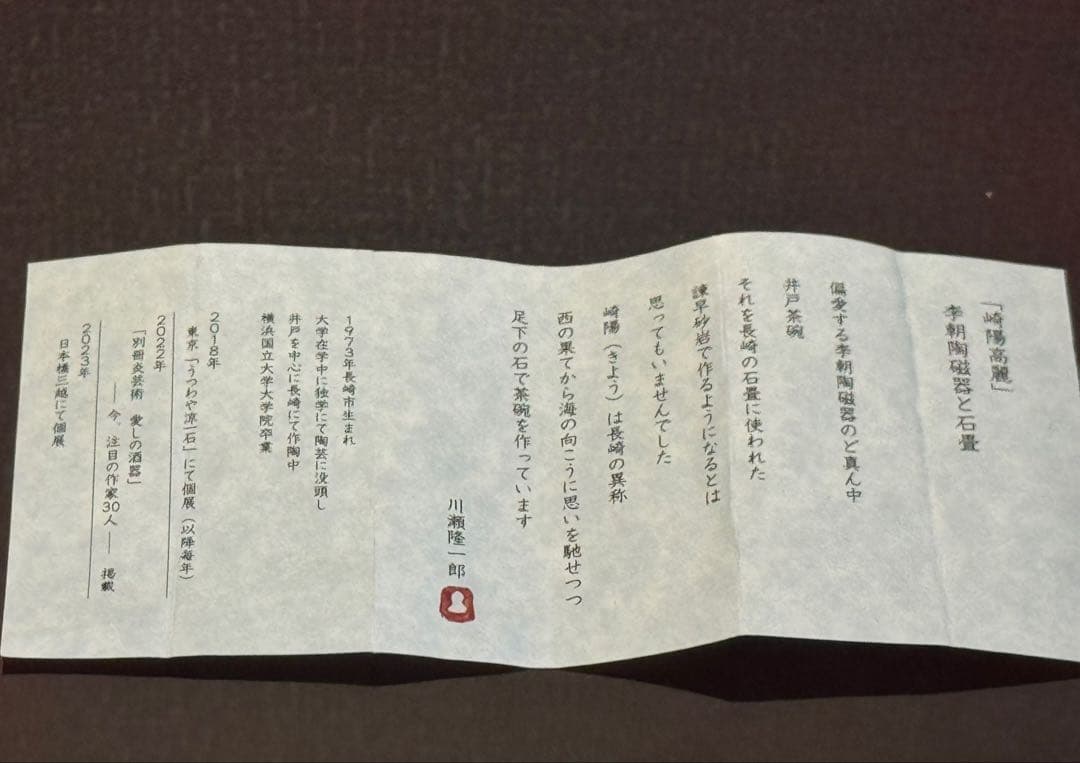 「崎陽高麗」
李朝陶磁器と石畳
偏愛する李朝陶磁器のど真ん中
井戸茶碗
それを長崎の石畳に使われた
諫早砂岩で作るようになるとは
思ってもいませんでした
崎陽（きよう）は長崎の異称
西の果てから海の向こうに思いを馳せつつ
足下の石で茶碗を作っています
川瀬隆一郎
1973年長崎市生まれ
大学在学中に独学にて陶芸に没頭し
井戸を中心に長崎にて作陶中
横浜国立大学大学院卒業
2018年
東京「うつわや涼一石」にて個展（以降毎年）
2022年
「別冊炎芸術　愛しの酒器」
― 今、注目の作家30人 ―　掲載
2023年
日本橋三越にて個展